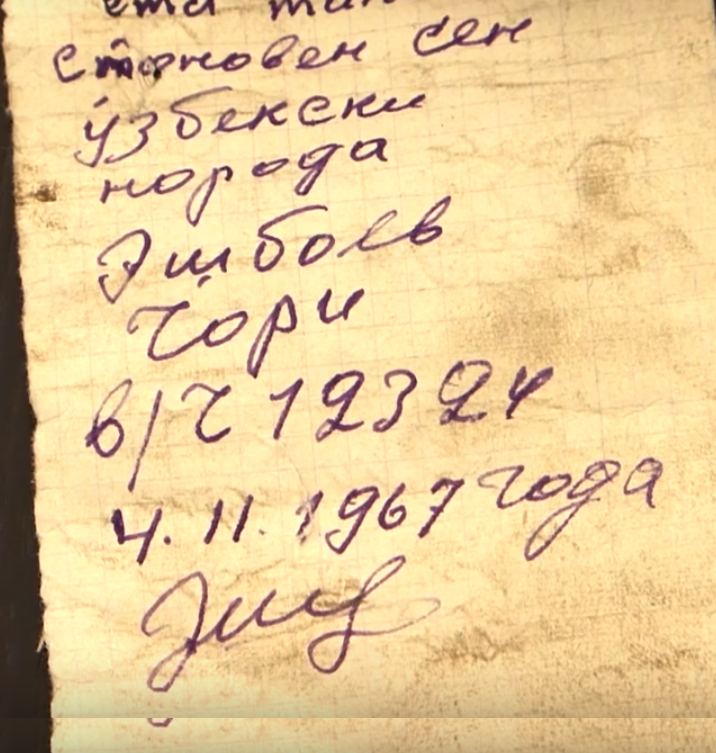 ета тан
становен сен
узбекски
норода
Эшбоев
Чори
в/ч 12324
4. 11. 1967 года